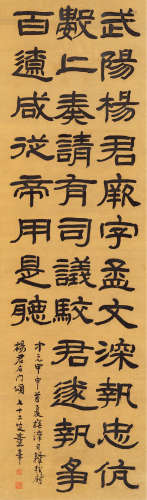 武陽楊君厥字孟文深執忠伉
數上奏請有司議駮君遂執爭
百遼咸從帝用是聽
甲申首夏
楊君石門頌七十二叟